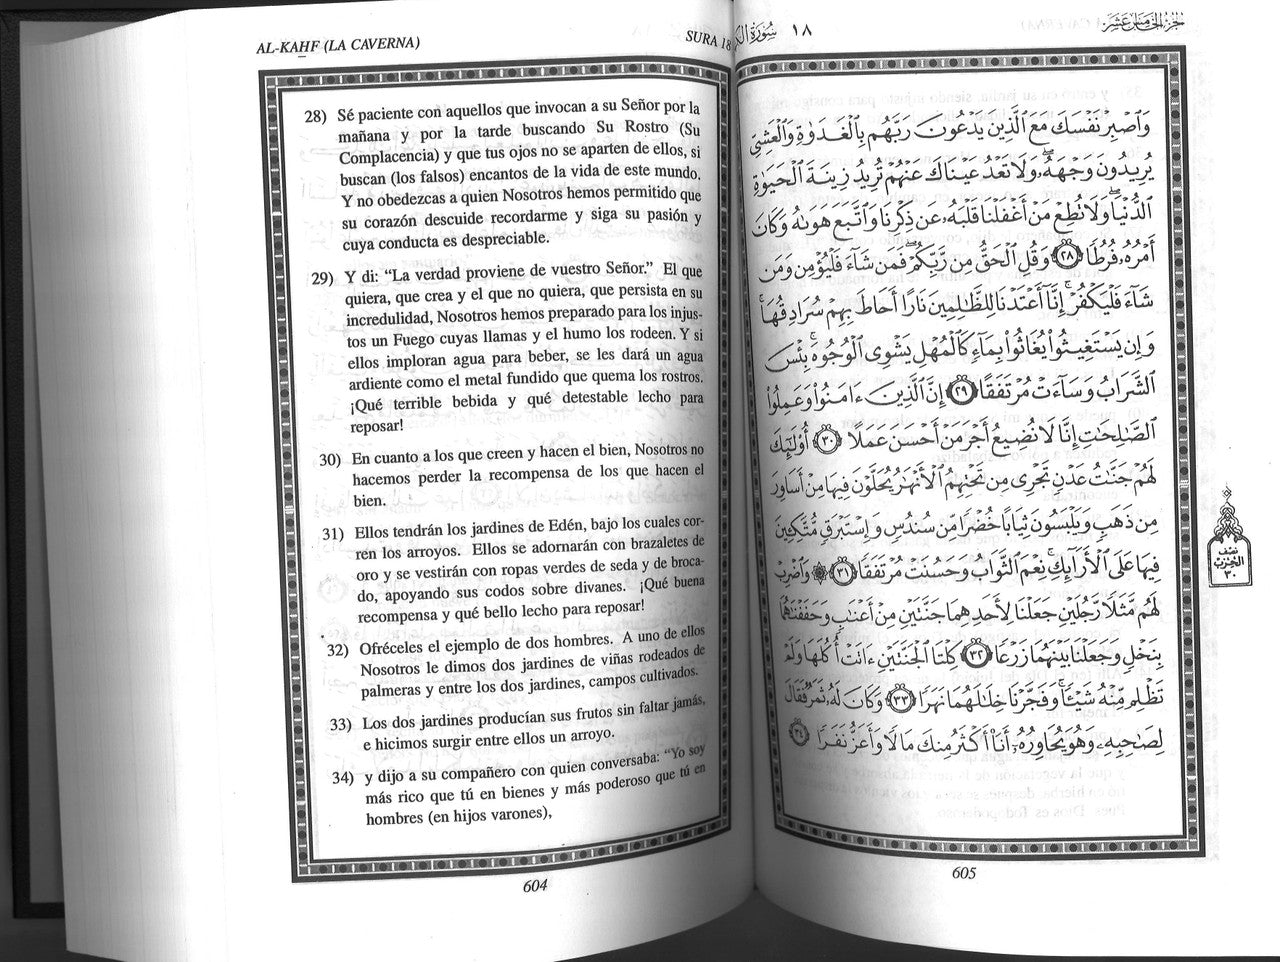 AL-KAHF (LA CAVERNA)
SURA 18
28) Sé paciente con aquellos que invocan a su Señor por la
mañana y por la tarde buscando Su Rostro (Su
Complacencia) y que tus ojos no se aparten de ellos, si
buscan (los falsos) encantos de la vida de este mundo.
Y no obedezcas a quien Nosotros hemos permitido que
su corazón descuide recordarme y siga su pasión y
cuya conducta es despreciable.
29) Y di: “La verdad proviene de vuestro Señor.” El que
quiera, que crea y el que no quiera, que persista en su
incredulidad, Nosotros hemos preparado para los injus-
tos un Fuego cuyas llamas y el humo los rodeen. Y si
ellos imploran agua para beber, se les dará un agua
ardiente como el metal fundido que quema los rostros.
¡Qué terrible bebida y qué detestable lecho para
reposar!
30) En cuanto a los que creen y hacen el bien, Nosotros no
hacemos perder la recompensa de los que hacen el
bien.
31) Ellos tendrán los jardines de Edén, bajo los cuales cor-
ren los arroyos. Ellos se adornarán con brazaletes de
oro y se vestirán con ropas verdes de seda y de broca-
do, apoyando sus codos sobre divanes. ¡Qué buena
recompensa y qué bello lecho para reposar!
32) Ofréceles el ejemplo de dos hombres. A uno de ellos
Nosotros le dimos dos jardines de viñas rodeados de
palmeras y entre los dos jardines, campos cultivados.
33) Los dos jardines producían sus frutos sin faltar jamás,
e hicimos surgir entre ellos un arroyo.
34) y dijo a su compañero con quien conversaba: “Yo soy
más rico que tú en bienes y más poderoso que tú en
hombres (en hijos varones),
604
سُورَةُ الك ١٨
الجزء الخامس عشر
وَٱصۡبِرۡ نَفۡسَكَ مَعَ ٱلَّذِينَ يَدۡعُونَ رَبَّهُم بِٱلۡغَدَوٰةِ وَٱلۡعَشِيِّ
يُرِيدُونَ وَجۡهَهُۥۖ وَلَا تَعۡدُ عَيۡنَاكَ عَنۡهُمۡ تُرِيدُ زِينَةَ ٱلۡحَيَوٰةِ
ٱلدُّنۡيَاۖ وَلَا تُطِعۡ مَنۡ أَغۡفَلۡنَا قَلۡبَهُۥ عَن ذِكۡرِنَا وَٱتَّبَعَ هَوَىٰهُ وَكَانَ
أَمۡرُهُۥ فُرُطٗا ٢٨ وَقُلِ ٱلۡحَقُّ مِن رَّبِّكُمۡۖ فَمَن شَآءَ فَلۡيُؤۡمِن وَمَن
شَآءَ فَلۡيَكۡفُرۡۚ إِنَّآ أَعۡتَدۡنَا لِلظَّٰلِمِينَ نَارًا أَحَاطَ بِهِمۡ سُرَادِقُهَاۚ
وَإِن يَسۡتَغِيثُواْ يُغَاثُواْ بِمَآءٖ كَٱلۡمُهۡلِ يَشۡوِي ٱلۡوُجُوهَۚ بِئۡسَ
ٱلشَّرَابُ وَسَآءَتۡ مُرۡتَفَقًا ٢٩ إِنَّ ٱلَّذِينَ ءَامَنُواْ وَعَمِلُواْ
ٱلصَّٰلِحَٰتِ إِنَّا لَا نُضِيعُ أَجۡرَ مَنۡ أَحۡسَنَ عَمَلًا ٣٠ أُوْلَٰٓئِكَ
لَهُمۡ جَنَّٰتُ عَدۡنٖ تَجۡرِي مِن تَحۡتِهِمُ ٱلۡأَنۡهَٰرُ يُحَلَّوۡنَ فِيهَا مِنۡ أَسَاوِرَ
مِن ذَهَبٖ وَيَلۡبَسُونَ ثِيَابًا خُضۡرٗا مِّن سُندُسٖ وَإِسۡتَبۡرَقٖ مُّتَّكِـِٔينَ
فِيهَا عَلَى ٱلۡأَرَآئِكِۚ نِعۡمَ ٱلثَّوَابُ وَحَسُنَتۡ مُرۡتَفَقٗا ٣١ ۞ وَٱضۡرِبۡ
لَهُم مَّثَلٗا رَّجُلَيۡنِ جَعَلۡنَا لِأَحَدِهِمَا جَنَّتَيۡنِ مِنۡ أَعۡنَٰبٖ وَحَفَفۡنَٰهُمَا
بِنَخۡلٖ وَجَعَلۡنَا بَيۡنَهُمَا زَرۡعٗا ٣٢ كِلۡتَا ٱلۡجَنَّتَيۡنِ ءَاتَتۡ أُكُلَهَا وَلَمۡ
تَظۡلِم مِّنۡهُ شَيۡـٔٗاۚ وَفَجَّرۡنَا خِلَٰلَهُمَا نَهَرٗا ٣٣ وَكَانَ لَهُۥ ثَمَرٞ فَقَالَ
لِصَٰحِبِهِۦ وَهُوَ يُحَاوِرُهُۥٓ أَنَا۠ أَكۡثَرُ مِنكَ مَالٗا وَأَعَزُّ نَفَرٗا ٣٤
نصف
الحزب
٣٠
605